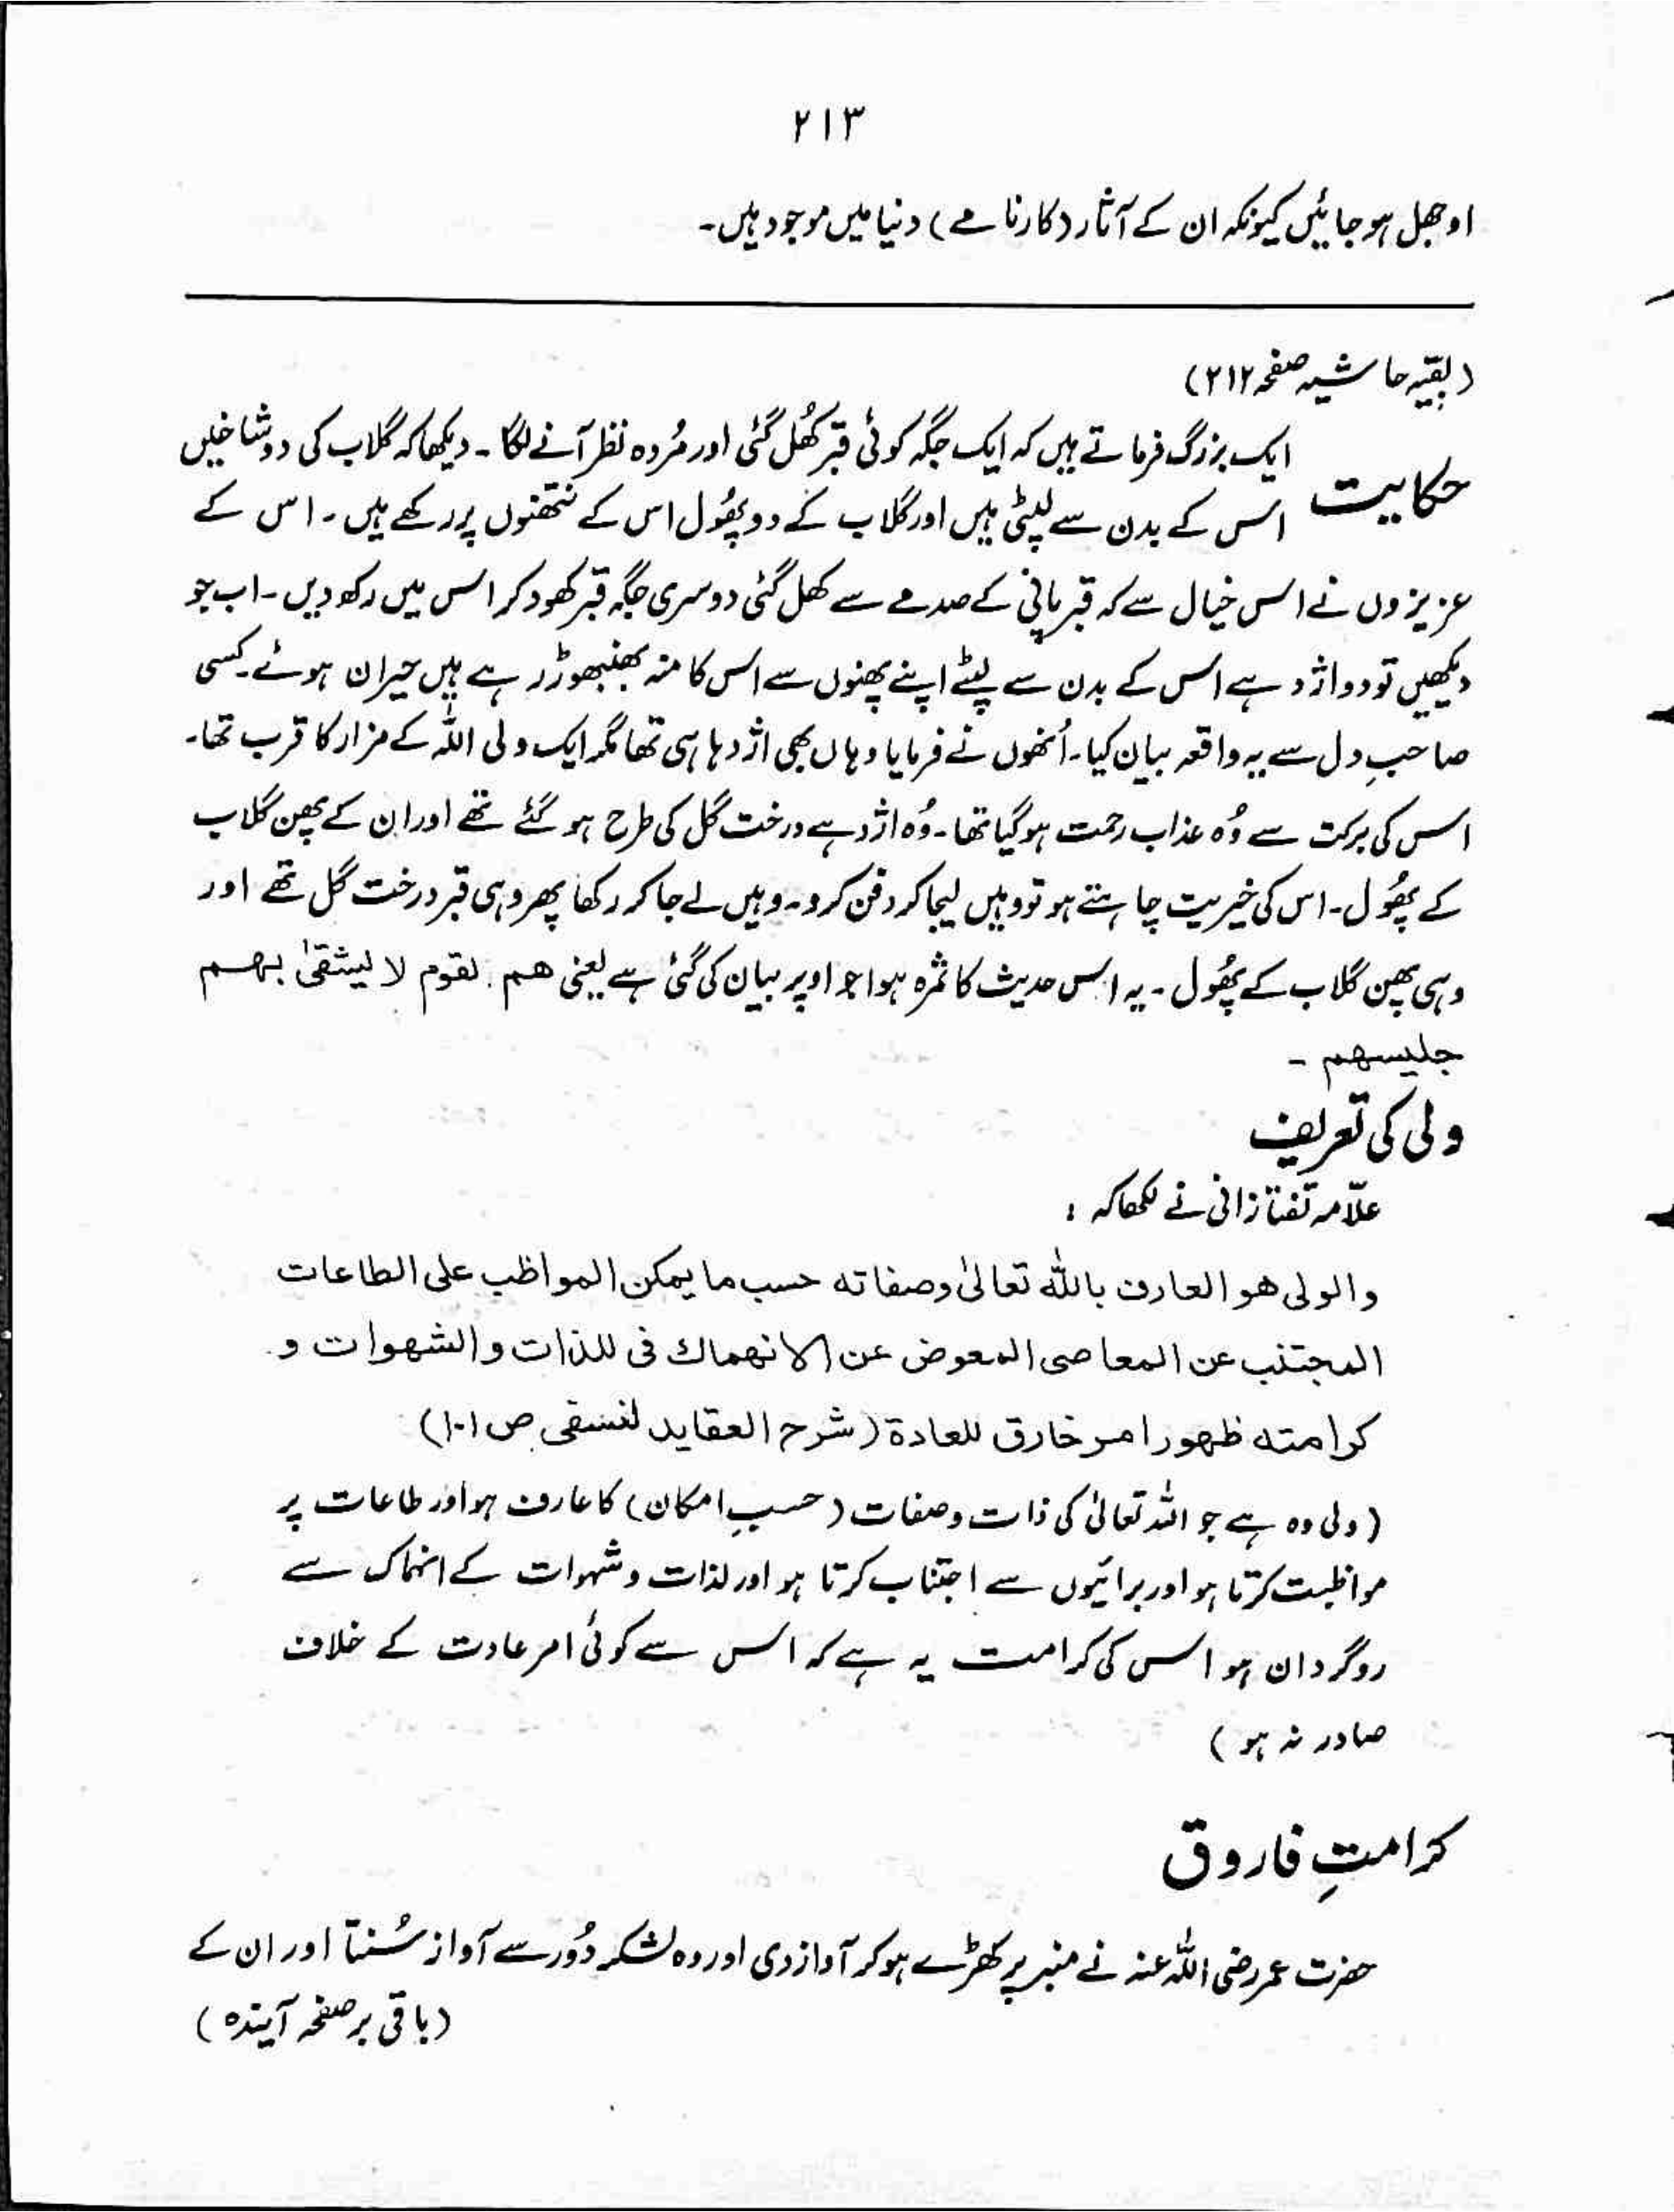 ۲۱۳
اوجھل ہو جائیں کیونکہ ان کے آثار (کارنامے) دنیا میں موجود ہیں۔
(بقیہ حاشیہ صفحہ ۲۱۲)
حکایت ایک بزرگ فرماتے ہیں کہ ایک جگہ کوئی قبر کھُل گئی اور مُردہ نظر آنے لگا۔ دیکھا کہ گلاب کی دو شاخیں
اس کے بدن سے لپٹی ہیں اور گلاب کے دو پھُول اس کے نتھنوں پر رکھے ہیں۔ اس کے
عزیزوں نے اس خیال سے کہ قبر پانی کے صدمے سے کھل گئی دوسری جگہ قبر کھود کر اس میں رکھ دیں۔ اب جو
دیکھیں تو دو اژدہے اس کے بدن سے لپٹے اپنے پھنوں سے اس کا منہ بھنبھوڑ رہے ہیں حیران ہوئے۔ کسی
صاحبِ دل سے یہ واقعہ بیان کیا۔ اُنھوں نے فرمایا وہاں بھی اژدہا ہی تھا مگر ایک ولی اللہ کے مزار کا قرب تھا۔
اس کی برکت سے وُہ عذاب رحمت ہو گیا تھا۔ وُہ اژدہے درخت گل کی طرح ہو گئے تھے اور ان کے پھن گلاب
کے پھُول۔ اس کی خیریت چاہتے ہو تو وہیں لیجا کر دفن کرو۔ وہیں لے جا کر رکھا پھر وہی قبر درخت گل تھے اور
وہی پھن گلاب کے پھُول۔ یہ اس حدیث کا ثمرہ ہوا جو اوپر بیان کی گئی ہے یعنی هم لقوم لا یشقیٰ بهم
جلیسهم ۔
ولی کی تعریف
علّامہ تفتازانی نے لکھا کہ :
والولی هو العارف باللّٰه تعالیٰ وصفاته حسب ما یمکن المواظب علی الطاعات
المجتنب عن المعاصی المعوض عن الانهماك فی للذات والشهوات و
کرامته ظهور امر خارق للعادة (شرح العقاید لنسفی ص ۱۰۱)
(ولی وہ ہے جو اللہ تعالیٰ کی ذات وصفات (حسبِ امکان) کا عارف ہو اور طاعات پر
مواظبت کرتا ہو اور برائیوں سے اجتناب کرتا ہو اور لذات و شہوات کے انہماک سے
روگردان ہو اس کی کرامت یہ ہے کہ اس سے کوئی امر عادت کے خلاف
صادر نہ ہو)
کرامتِ فاروق
حضرت عمر رضی اللہ عنہ نے منبر پر کھڑے ہو کر آواز دی اور وہ لشکر دُور سے آواز سُنتا اور ان کے
(باقی بر صفحہ آیندہ)